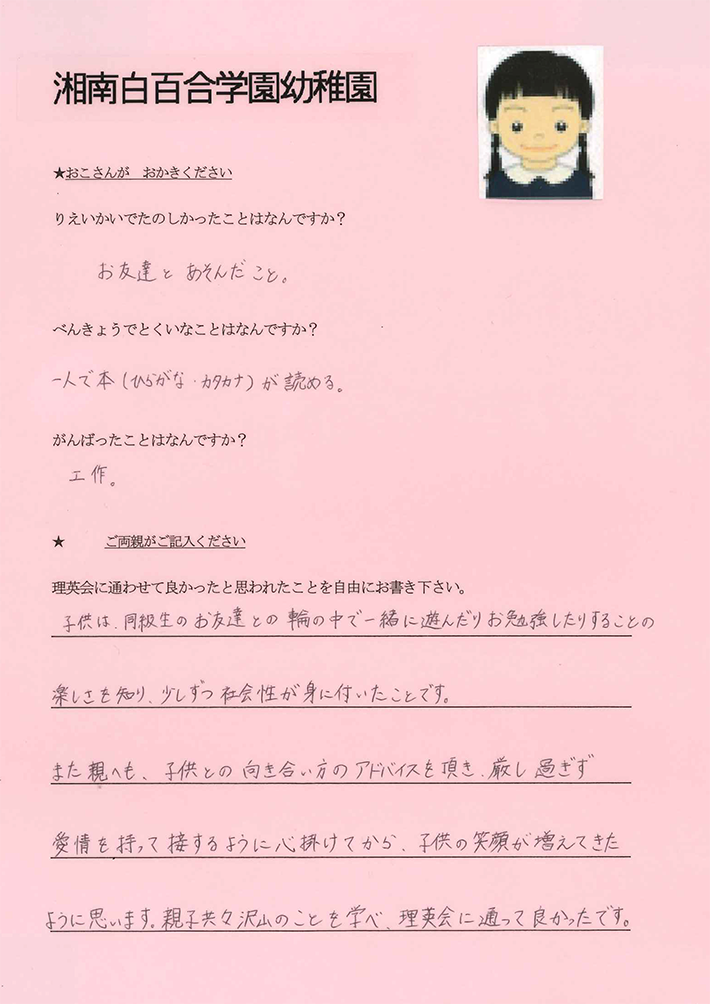 湘南白百合学園幼稚園
★おこさんが　おかきください
りえいかいでたのしかったことはなんですか？
お友達と あそんだこと。
べんきょうでとくいなことはなんですか？
一人で本（ひらがな・カタカナ）が読める。
がんばったことはなんですか？
工作。
★　　　ご両親がご記入ください
理英会に通わせて良かったと思われたことを自由にお書き下さい。
子供は、同級生のお友達との輪の中で一緒に遊んだりお勉強したりすることの
楽しさを知り、少しずつ社会性が身に付いたことです。
また親へも、子供との向き合い方のアドバイスを頂き、厳し過ぎず
愛情を持って接するように心掛けてから、子供の笑顔が増えてきた
ように思います。親子共々沢山のことを学べ、理英会に通って良かったです。